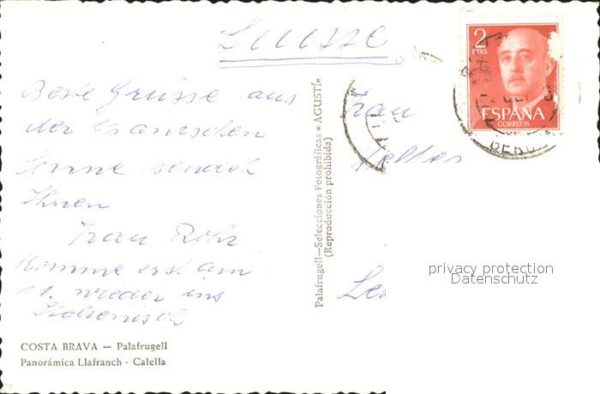 Suisse
2
PTAS
ESPAÑA
CORREOS
Beste Grüsse aus
der spanischen
Sonne sendet
Ihnen
Frau Rohr
Komme erst am
11. wieder ins
Frau
Palafrugell—Selecciones Fotográficas «AGUSTÍ»
(Reproducción prohibida)
privacy protection
Datenschutz
COSTA BRAVA — Palafrugell
Panorámica Llafranch - Calella